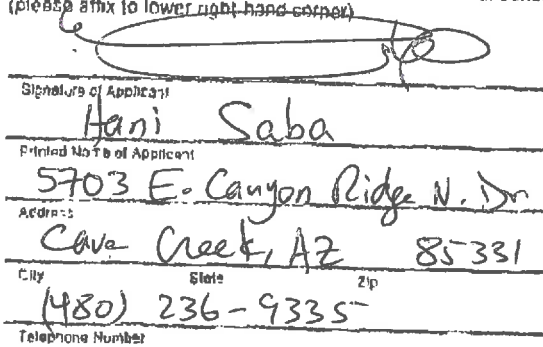 (please affix to lower right hand corner)
Signature of Applicant
Hani Saba
Printed Name of Applicant
5703 E. Canyon Ridge N. Dr
Address
Cave Creek, AZ 85331
City State Zip
(480) 236-9335
Telephone Number